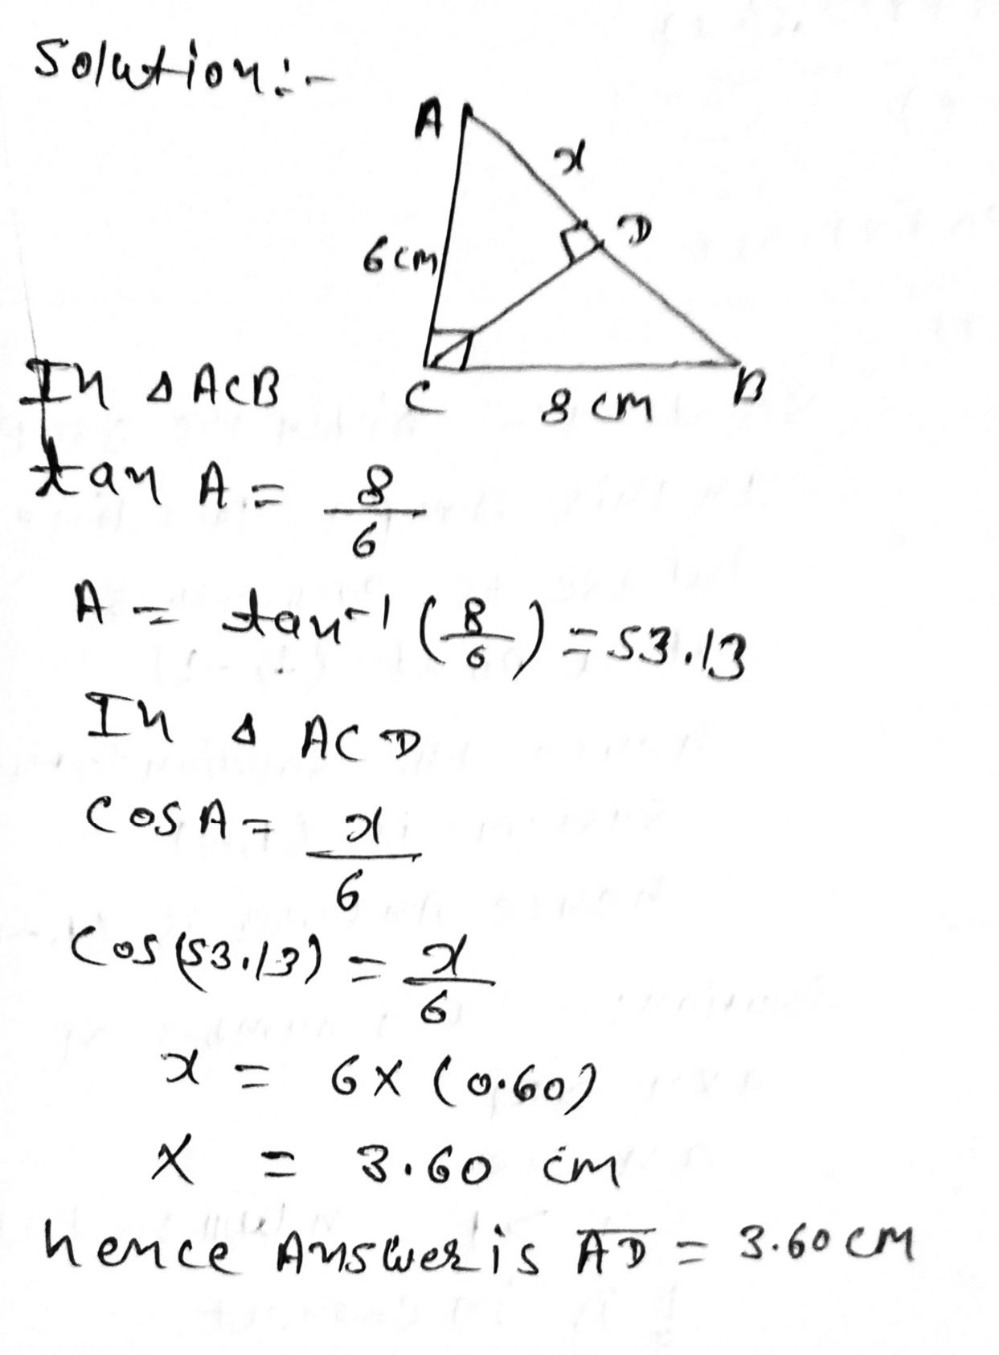 Solution:-
A
x
D
6cm
C
8 cm
B
In △ ACB
tan A = 8/6
A = tan⁻¹ (8/6) = 53.13
In △ ACD
Cos A = x/6
Cos (53.13) = x/6
x = 6 × (0.60)
x = 3.60 cm
hence Answer is A̅D̅ = 3.60 cm